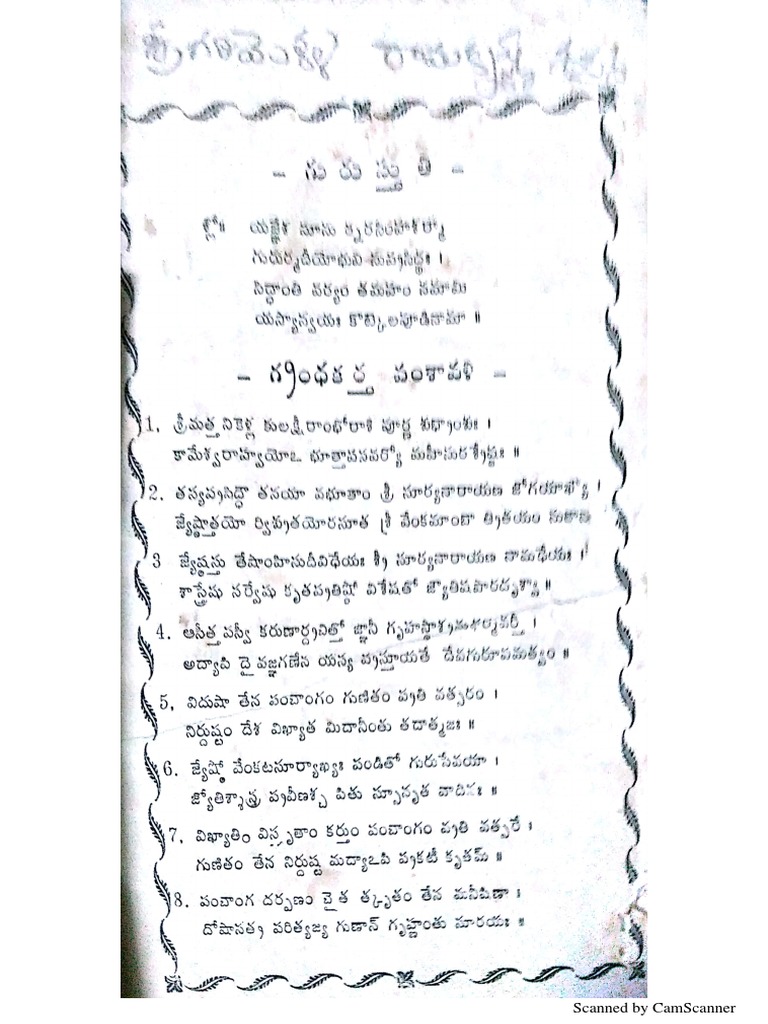 - గు రు స్తు తి -
శ్లో॥ యజ్ఞేశ సూను ర్నరసింహశర్మా
గురుర్మదీయోభువి సుప్రసిద్ధః ।
సిద్ధాంతి వర్యం తమహం నమామి
యస్యాన్వయః కొట్కలపూడినామా ॥
- గ్రంధకర్త వంశావళి -
1. శ్రీమత్త నికెళ్ల కులక్షీరాంభోరాశి పూర్ణ శుధ్ధాంశుః ।
కామేశ్వరాహ్వయోఽ భూత్తాపసవర్యో మహీసురశ్రేష్ఠః ॥
2. తస్యప్రసిద్ధౌ తనయా వభూతాం శ్రీ సూర్యనారాయణ జోగయాఖ్యౌ ।
జ్యేష్ఠాత్తయో ర్విప్రతయోరసూత శ్రీ వేంకమాంబా త్రితయం సుతానా
3 జ్యేష్ఠస్తు తేషాంహిసుదీవిధేయః శ్రీ సూర్యనారాయణ నామధేయః ।
శాస్త్రేషు సర్వేషు కృతప్రతిష్ఠో విశేషతో జ్యౌతిషపారదృశ్వా ॥
4. ఆసీత్త పస్వీ కరుణార్ద్రచిత్తో జ్ఞానీ గృహస్థాశ్రమధర్మవర్తీ ।
అద్యాపి దై వజ్ఞగణేన యస్య ప్రస్తూయతే దేవగురూపమత్వం ॥
5, విదుషా తేన పంచాంగం గుణితం ప్రతి వత్సరం ।
నిర్దుష్టం దేశ విఖ్యాత మిదానీంతు తదాత్మజః ॥
6. జ్యేష్ఠో వేంకటసూర్యాఖ్యః పండితో గురుసేవయా ।
జ్యోతిశ్శాస్త్ర ప్రవీణశ్చ పితు స్సూనృత వాదినః ॥
7, విఖ్యాతిం విస్తృతాం కర్తుం పంచాంగం ప్రతి వత్సరే ।
గుణితం తేన నిర్దుష్ట మద్యాఽపి ప్రకటీ కృతమ్ ॥
8. పంచాంగ దర్పణం చైత త్కృతం తేన మనీషిణా ।
దోషానత్ర పరిత్యజ్య గుణాన్ గృహ్ణంతు సూరయః ॥
Scanned by CamScanner